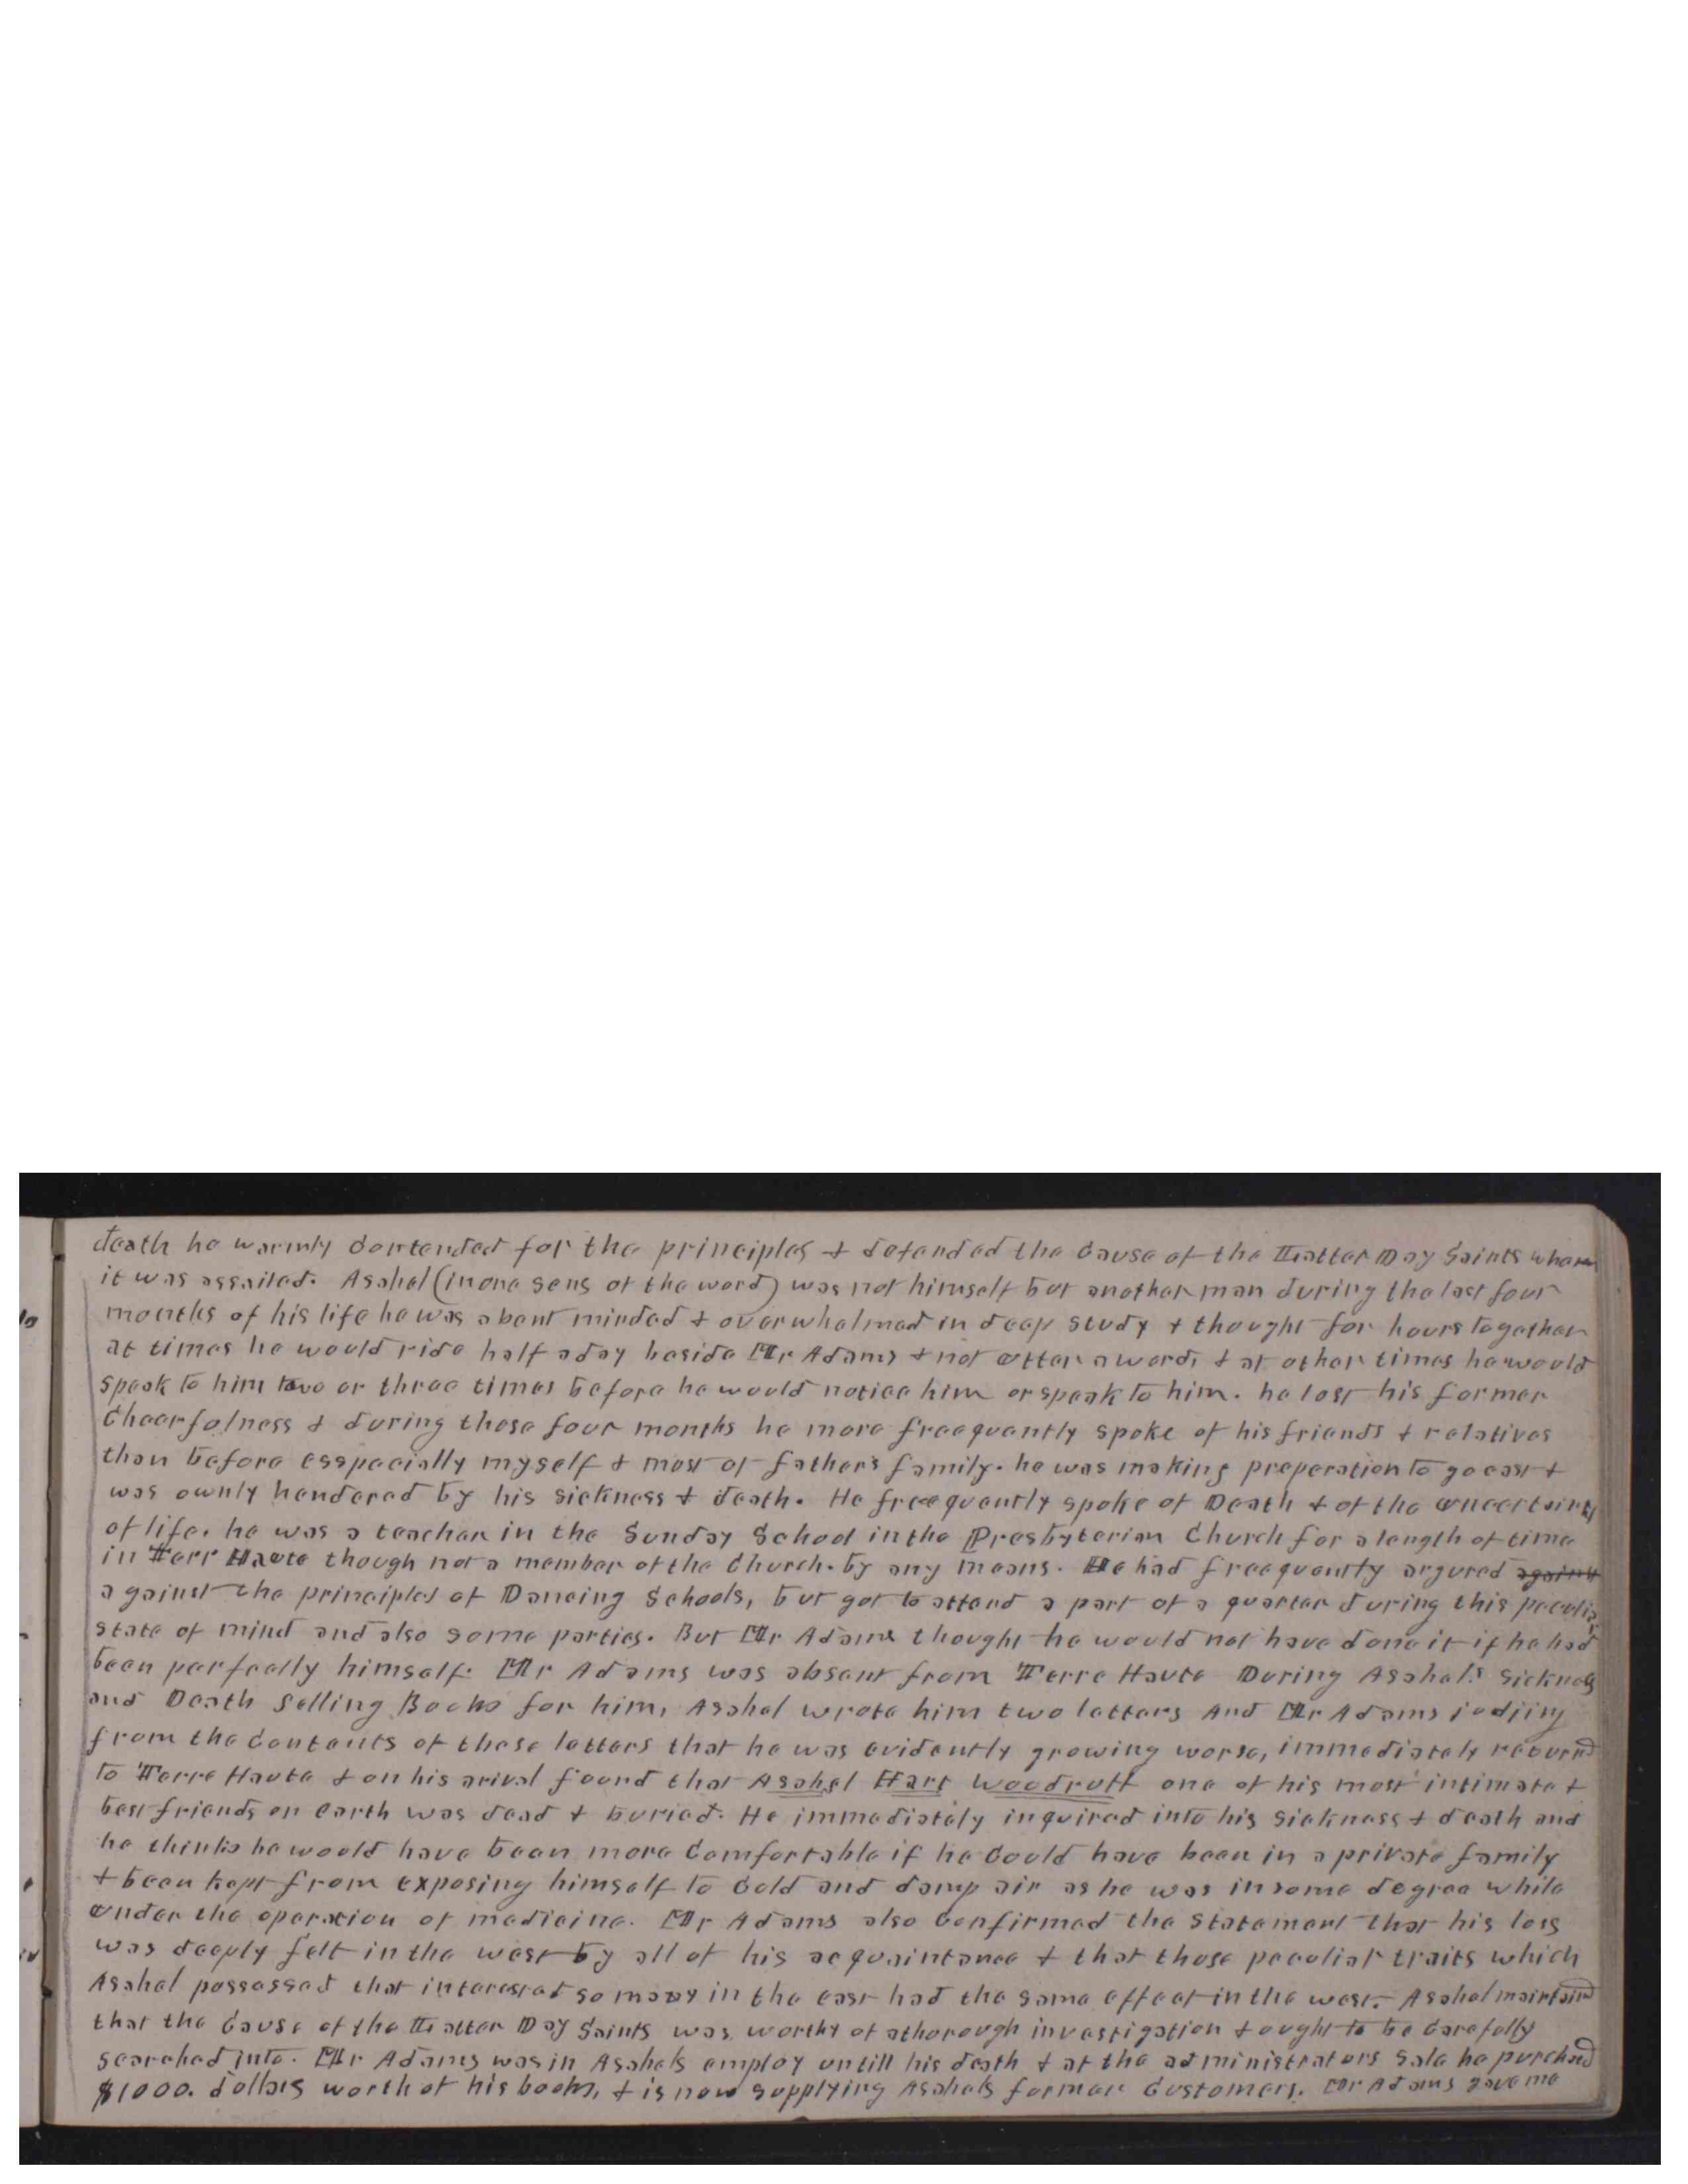 death he warmly contended for the principles & defended the Cause of the Latter Day Saints whare
it was assailed. Asahel (in one sens of the word) was not himself but another man during the last four
months of his life he was abent minded & overwhelmed in deep study & thought for hours together
at times he would ride half a day beside Mr Adams & not utter a word, & at other times he would
speak to him two or three times before he would notice him or speak to him. he lost his former
Cheerfulness & during these four months he more freequently spoke of his friends & relatives
than before esspecially myself & most of father's family. he was making preperation to go east &
was ownly hendered by his sickness & death. He freequently spoke of Death & of the uncertainty
of life. he was a teacher in the Sunday School in the Presbyterian Church for a length of time
in Terr Haute though not a member of the Church by any means. He had freequently argured against
against the principles of Dancing Schools, but got to attend a part of a quarter during this peculiar
state of mind and also some parties. But Mr Adams thought he would not have done it if he had
been perfectly himself. Mr Adams was absent from Terre Haute During Asahel's sickness
and Death Selling Books for him, Asahel wrote him two letters And Mr Adams judjing
from the Contents of those letters that he was evidently growing worse, immediately returnd
to Terre Haute & on his arival found that Asahel Hart Woodruff one of his most intimate &
best friends on earth was dead & buried. He immediately inquired into his sickness & death and
he thinks he would have been more Comfortable if he Could have been in a private family
& been kept from exposing himself to Cold and damp air as he was in some degree while
under the operation of medicine. Mr Adams also Confirmed the statement that his loss
was deeply felt in the west by all of his acquaintance & that those peculiar traits which
Asahel possessed that interested so many in the east had the same effect in the west. Asahel maintaind
that the Cause of the Latter Day Saints was worthy of a thorough investigation & ought to be Carefully
searched into. Mr Adams was in Asahels employ untill his death & at the administrators Sale he purchased
$1000. dollars worth of his books, & is now supplying Asahels former Customers. Mr Adams gave me